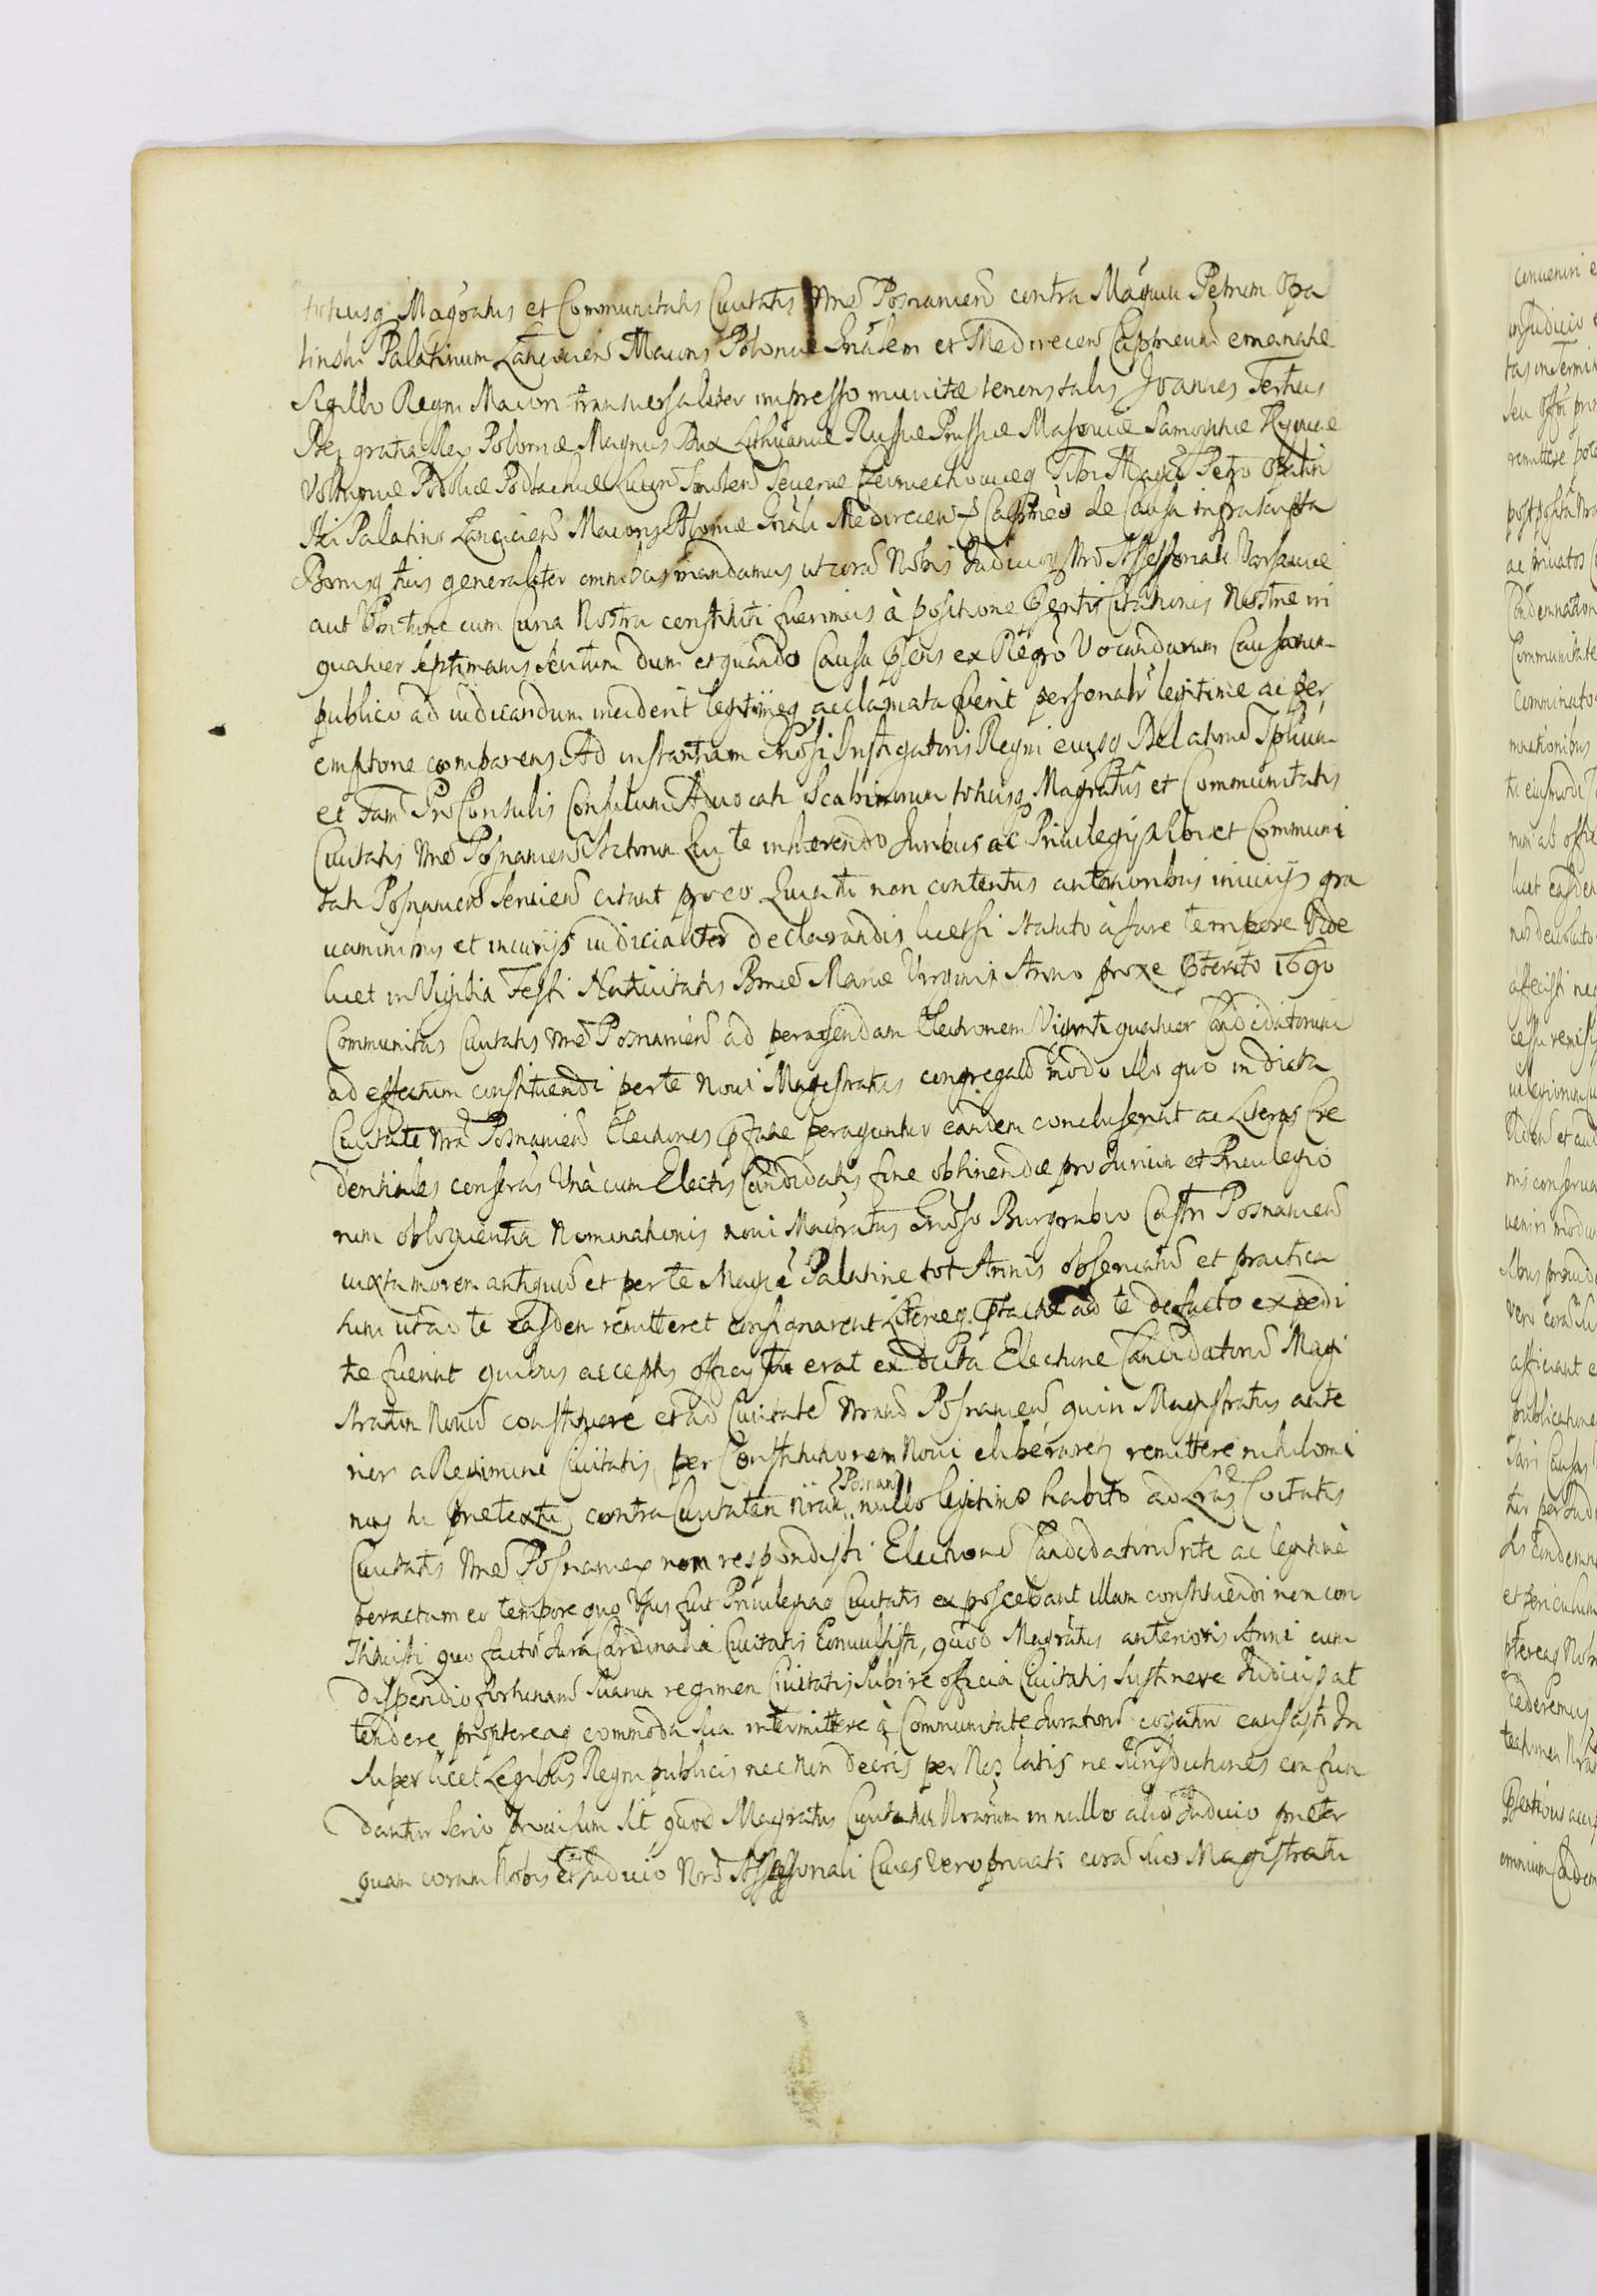 totiusq Magratus et Communitatis Civitatis Nrae Posnanien contra Magcum Petrum Opa
linski Palatinum Lancicien Maioris Poloniae Gnalem et Medirecen Capneum emanatae
Sigillo Regni Maiori transversaliter impresso munitae tenoris talis Joannes Tertius
Dei gratia Rex Poloniae Magnus Dux Lithuaniae Russiae Prussiae Masoviae Samogitiae Kyoviae
Volhyniae Podoliae Podlachiae Smolen Severiae Czerniechoviaeq Tibi Magco Petro Opalin
ski Palatino Lancicien Maioris Poloniae Gnali Medirecen Capneo de Causa infrascripta
Bonisq tuis generaliter omnibus mandamus ut cora Nobis Judicioq Nro Assessoriali Varsaviae
aut Ubi tunc cum Curia Nostra constituti fuerimus à positione Psentis Citationis Nostrae in
quatuor septimanis dum et quando Causa Psens ex Regro Vocandarum Causarum
publico ad iudicandum inciderit legitimeq acclamata fuerit personalr legitime ac per
emptorie compareas Ad instantiam Gnosi Instigatoris Regni eiusq Delatorum Spblium
et Fam Pro Consulis Consulum Advocati Scabinorum totiusq Magratus et Communitatis
Civitatis Nrae Posnanien Actorum Qui te inhaerendo Juribus ac Privilegijs sibi et Communi
tati Posnanien Servien citant pro eo Quia tu non contentus anterioribus iniurijs gra
uaminibus et iniurijs iudicialiter declarandis licet si statuto à Jure tempore Vide
licet in Vigilia Festi Nativitatis Bmae Mariae Virginis Anno proxe Pterito 1690
Communitas Civitatis Nrae Posnanien ad peragendam Electionem Viginti quatuor Candidatorum
ad effectum constituendi per te Novi Magistratus congregata modo illo quo in dicta
Civitate Nra Posnanien Electiones peraguntur eandem concluserit ac Literas Cre
dentiales consuetas Unà cum Electis Candidatis fine obtinendae pro Jurium et Privilegio
rum obloquentia Nominationis novi Magratus Gnoso Burgrabio Castri Posnanien
iuxta morem antiquum et per te Magce Palatine tot Annis observatum et practica
tum ut ad te easdem remitteret consignarent Literaeq Ptactae ad te de facto expedi
tae fuerint quibus acceptis officij tui erat ex dicta Electione Candidatorum Magi
stratum Novum constituere et ad Civitatem Nram Posnanien quin Magistratus ante
rior a Regimine Civitatis per Constitutionem Novi eliberaretur remittere nihilomi
nus tu praetextu contra Civitatem Nram Posnan nullo legitimo habito ad Lras Civitatis
Civitatis Nrae Posnanien non respondisti Electionem Candidatorum rite ac legitimè
peractam eo tempore quo Usus sive Privilegia Civitatis exposcebant illam constituendi non con
stituisti quo facto Jura Cardinalia Civitatis Convulsisti, quod Magratus anterioris Anni cum
dispendio fortunarum suarum regimen Civitatis Subire officia Civitatis sustinere Judicijs at
tendere proptereaq commoda sua intermittere à Communitate Juratorum cogatur causasti In
super licet Legibus Regni publicis nec non decris per Nos latis ne Jurisdictiones confun
dantur serio provisum sit quod Magratus Civitatum Nrarum in nullo alio Judicio praeter
quam coram Nobis et Judicio Nro Assessoriali Cives vero privati cora suo Magistratu